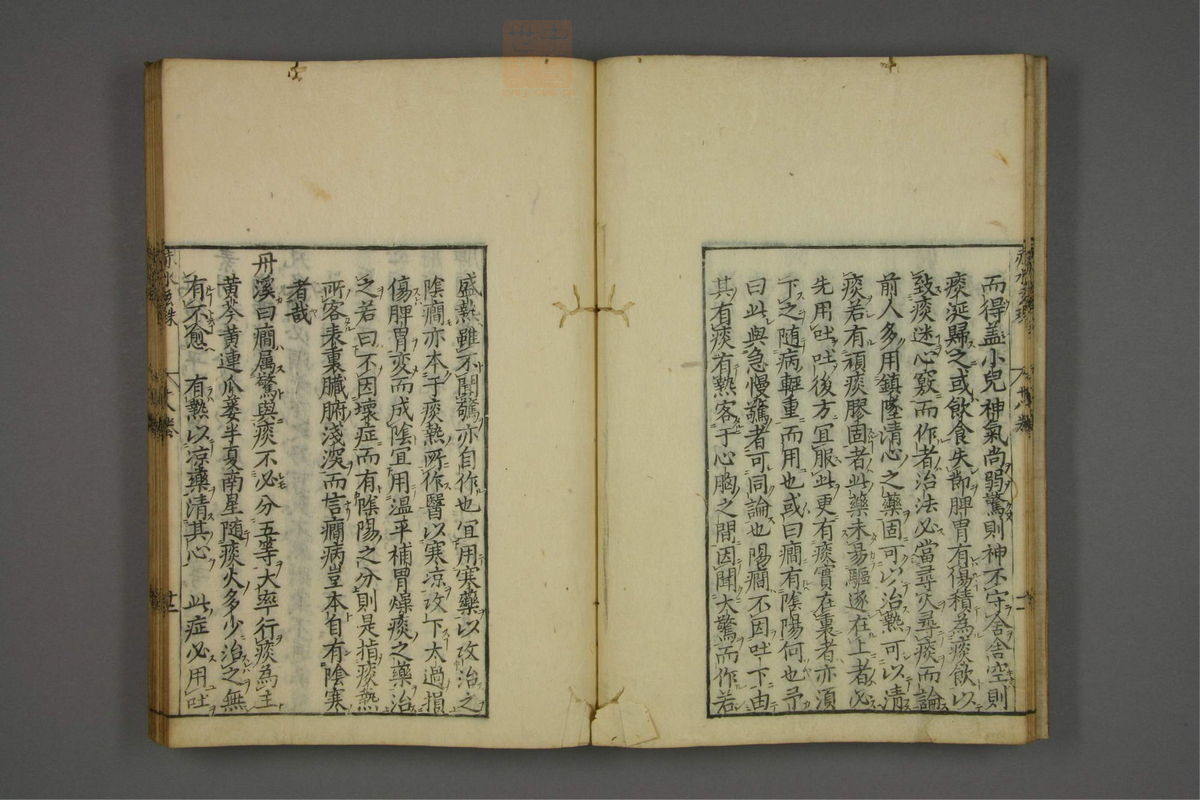 而得盖小兒神氣尚弱驚則神不守舍舍空則
痰涎歸之或飲食失節脾胃有傷積為痰飲以
致痰迷心竅而作者治法必當尋火尋痰而論
前人多用鎮墜清心之藥固可以治熱可以清
痰若有頑痰膠固者此藥未易驅逐在上者必
先用吐吐後方宜服此更有痰實在裏者亦須
下之随病輕重而用也或曰癇有陰陽何也予
曰此與急慢驚者可同論也陽癇不因吐下由
其有痰有熱客于心胸之間因聞大驚而作若
盛熱雖不聞驚亦自作也宜用寒藥以攻治之
陰癇亦本于痰熱所作醫以寒凉攻下太過損
傷脾胃变而成陰宜用温平補胃燥痰之藥治
之若曰不因壞症而有陰陽之分則是指痰熱
所客表裏臟腑淺深而言癇病豈本自有陰寒
者哉
丹溪曰癇属驚與痰不必分五等大率行痰為主
黄芩黄連瓜蔞半夏南星随痰火多少治之無
有不愈 有熱以凉藥清其心 此症必用吐
赤水玄珠 廿八卷